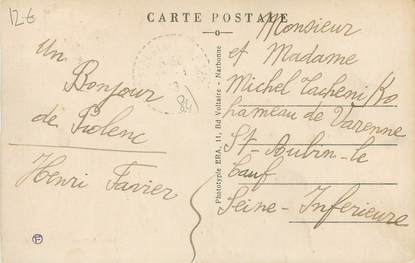 12-6
CARTE POSTALE
Un
Bonjour
de Piolenc
Henri Favier
84
Phototypie ERA, 11, Bd Voltaire - Narbonne
Monsieur
et Madame
Michel
hameau de Varenne
St-Aubin-le
Cauf
Seine-Inferieure